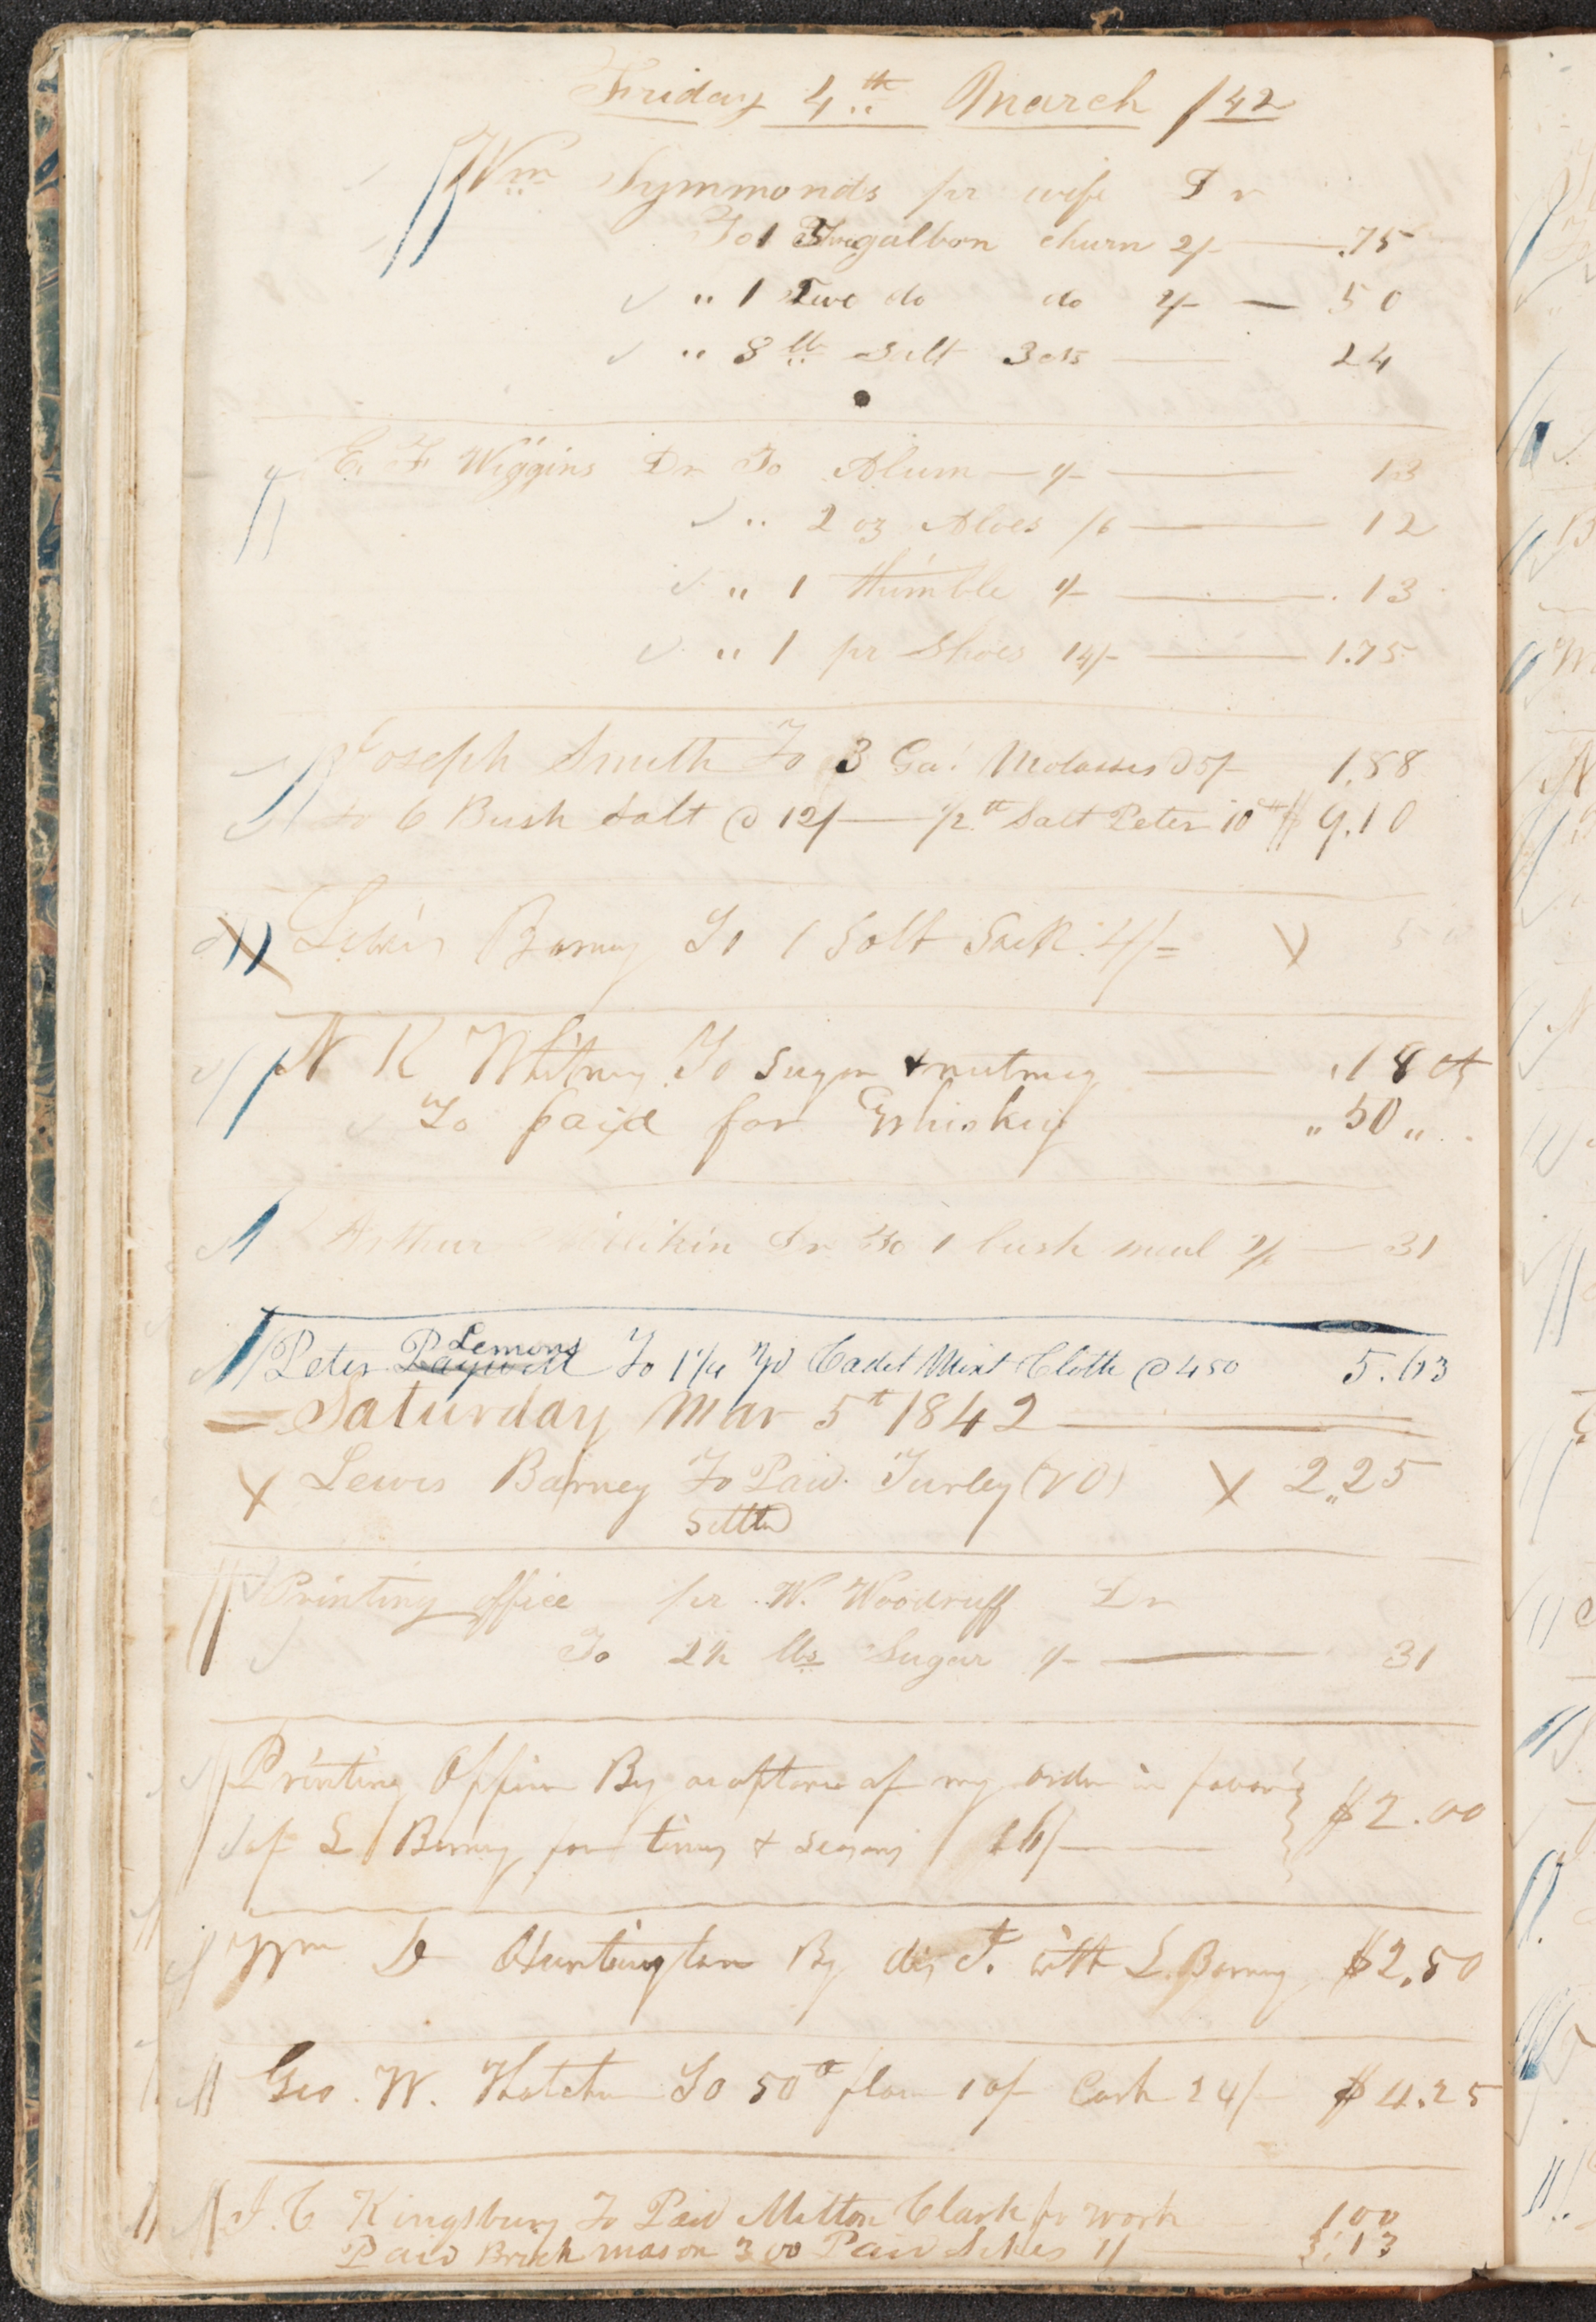 Friday 4th March /42
Wm Symmonds pr wife Dr
To 1 gallon churn 2/- .75
" 1 Two do do 4/- 50
" 8 lb Salt 3cts 24
E. F Wiggins Dr To Alum 1/- 13
" 2 oz Aloes /6 12
" 1 thimble 1/- 13
" 1 pr Shoes 14/- 1.75
Joseph Smith To 3 Gal Molasses @ 5/- 1.88
to 6 Bush Salt @ 12/ 1/2 # Salt Peter 10 $9.10
Lewis Barney To 1 Salt Sack 4/= 5
N K Whitney To Sugar & nutmeg .18 cts
To paid for Whiskey " 50 "
Arthur Millikin Dr To 1 bush meal 2/6 31
Peter Lemons To 1 1/4 yd Cadet Mixt Cloth @ 450 5.63
Saturday Mar 5t 1842
Lewis Barney To Paid Turley (VO) 2"25
Settld
Printing office pr W. Woodruff Dr
To 2 1/2 lbs Sugar 1/- 31
Printing Office By acceptance of my order in favor
of L Barney for times & seasons 16/ $2.00
Wm D Huntington By with L. Barney $2.50
Geo. W. Thatcher To 50 # flour 10/ Cash 24/- $4.25
J. C Kingsbury To Paid Milton Clark for work 100
Paid Brick mason 300 Paid Sikes 1/ 3.13